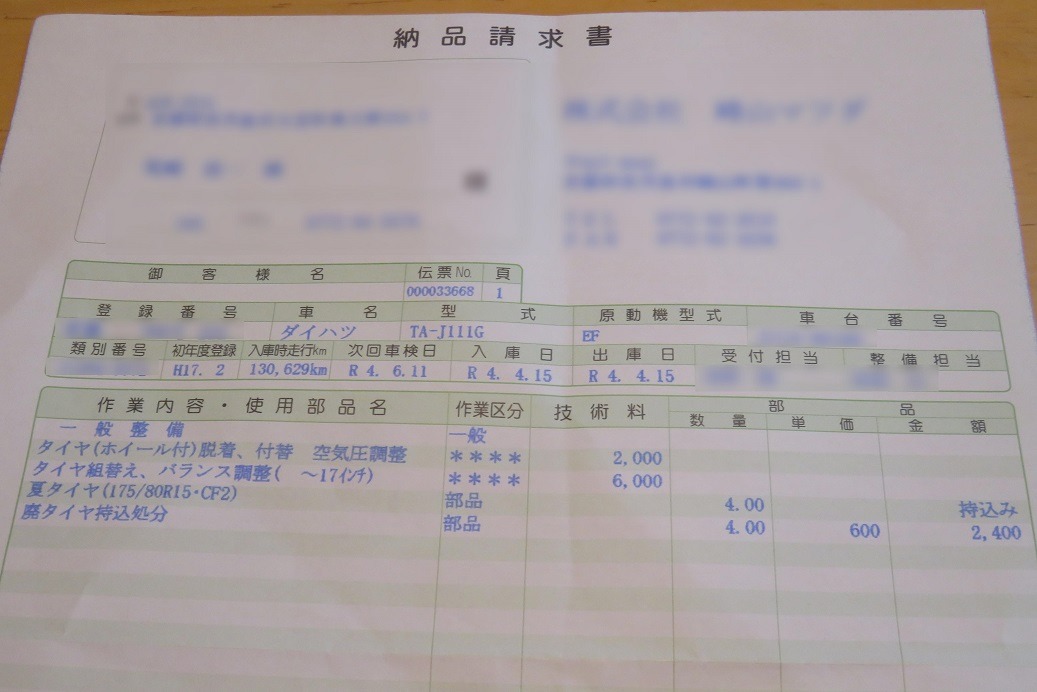 納品請求書
御客様名 伝票No. 頁
000033668 1
登録番号 車名 型式 原動機型式 車台番号
ダイハツ TA-J111G EF
類別番号 初年度登録 入庫時走行km 次回車検日 入庫日 出庫日 受付担当 整備担当
H17. 2 130,629km R 4. 6.11 R 4. 4.15 R 4. 4.15
作業内容・使用部品名 作業区分 技術料 部品
数量 単価 金額
一般整備 一般
タイヤ(ホイール付)脱着、付替 空気圧調整 **** 2,000
タイヤ組替え、バランス調整( ～17インチ) **** 6,000
夏タイヤ(175/80R15･CF2) 部品 4.00 持込み
廃タイヤ持込処分 部品 4.00 600 2,400